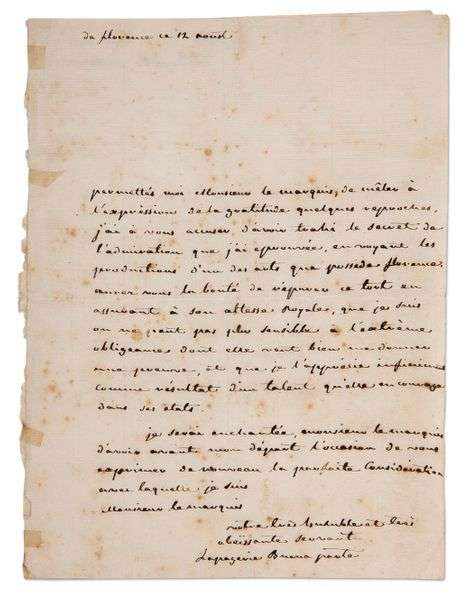 de florence ce 12 aoust
permettés moi Monsieur le marquis, de mêler à
l'expréssion de la gratitude quelques reproches,
j'ai à vous accuser d'avoir trahi le secret de
l'admiration que j'ai eprouvée, en voyant les
productions d'un des arts que possede florence.
aurez vous la bonté de réparer ce tort en
assurant à son altesse royale, que je suis
on ne peut pas plus sensible à l'extrème
obligeance dont elle veut bien me donner
une preuve, et que je l'apprécie infiniment
comme résultat d'un talent qu'elle encourage
dans ses états.
je serai enchantée monsieur le marquis
d'avoir avant mon départ l'occasion de vous
exprimer de nouveau la parfaite Considération
avec laquelle je suis
Monsieur le marquis
votre très humble et très
obéissante servante
Lapagerie Buonaparte